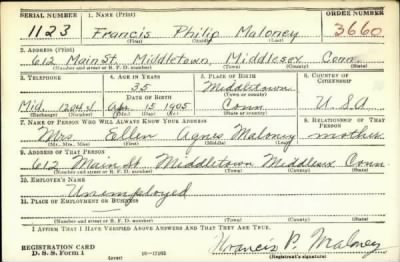 SERIAL NUMBER 1. NAME (Print) ORDER NUMBER
1123 Francis Philip Maloney 3660
(First) (Middle) (Last)
2. ADDRESS (Print)
612 Main St. Middletown, Middlesex Conn.
(Number and street or R. F. D. number) (Town) (County) (State)
3. TELEPHONE 4. AGE IN YEARS 5. PLACE OF BIRTH 6. COUNTRY OF CITIZENSHIP
35 Middletown
DATE OF BIRTH (Town or county)
Mid. 1204-4 Apr 15 1905 Conn U.S.A
(Exchange) (Number) (Mo.) (Day) (Yr.) (State or country)
7. NAME OF PERSON WHO WILL ALWAYS KNOW YOUR ADDRESS 8. RELATIONSHIP OF THAT PERSON
Mrs Ellen Agnes Maloney mother
(Mr., Mrs., Miss) (First) (Middle) (Last)
9. ADDRESS OF THAT PERSON
612 Main St Middletown Middlesex Conn
(Number and street or R. F. D. number) (Town) (County) (State)
10. EMPLOYER'S NAME
Unemployed
11. PLACE OF EMPLOYMENT OR BUSINESS
(Number and street or R. F. D. number) (Town) (County) (State)
I AFFIRM THAT I HAVE VERIFIED ABOVE ANSWERS AND THAT THEY ARE TRUE.
REGISTRATION CARD
D. S. S. Form 1 (over) Francis P. Maloney
(Registrant's signature)